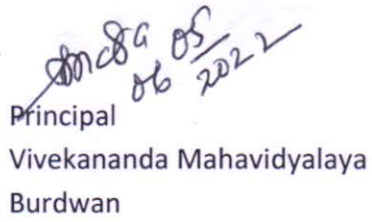 05
06 2022
Principal
Vivekananda Mahavidyalaya
Burdwan